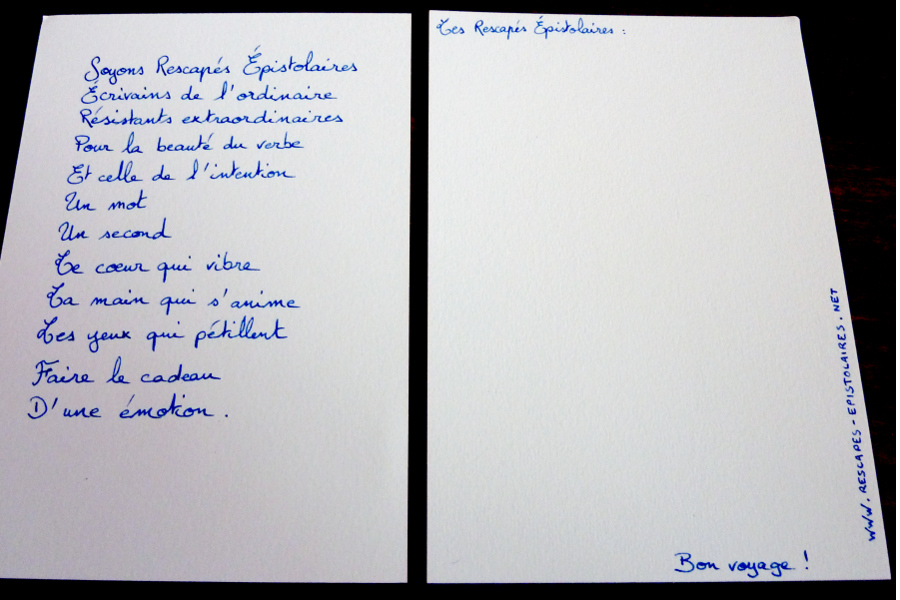 Soyons Rescapés Épistolaires
Écrivains de l'ordinaire
Résistants extraordinaires
Pour la beauté du verbe
Et celle de l'intention
Un mot
Un second
Le cœur qui vibre
La main qui s'anime
Les yeux qui pétillent
Faire le cadeau
D'une émotion.
Les Rescapés Épistolaires :
WWW.RESCAPES-EPISTOLAIRES.NET
Bon voyage !